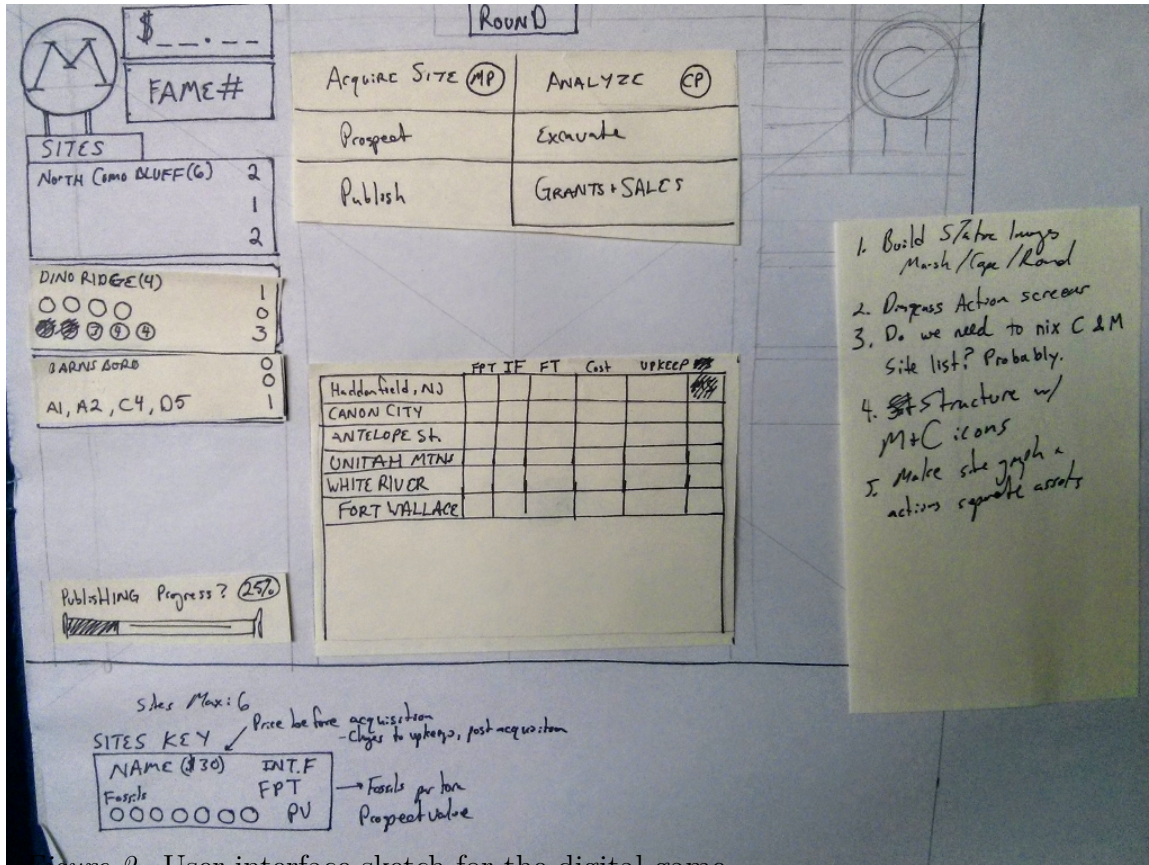 M
$ _ _ . _ _
FAME #
ROUND
C
SITES
NORTH COMO BLUFF (6) 2
1
2
DINO RIDGE (4) 1
0
3 4 4 3
BARNSBORO 0
0
A1, A2, C4, D5 1
PUBLISHING Progress? 25%
ACQUIRE SITE MP
ANALYZE CP
Prospect
Excavate
Publish
GRANTS + SALES
FPT IF FT Cost UPKEEP
Haddonfield, NJ
CANON CITY
ANTELOPE St.
UNITAH MTNS
WHITE RIVER
FORT WALLACE
1. Build S/atre Images
Marsh/Cope/Round
2. Action screens
3. Do we need to nix C & M
Site list? Probably.
4. Structure w/
M+C icons
5. Make site graph &
actions separate assets
Sites Max: 6
Price before acquisition
- Chges to upkeep, post acquisition
SITES KEY
NAME ($30) INT.F
Fossils FPT
PV
→ Fossils per turn
Prospect value
Figure 2. User interface sketch for the digital game